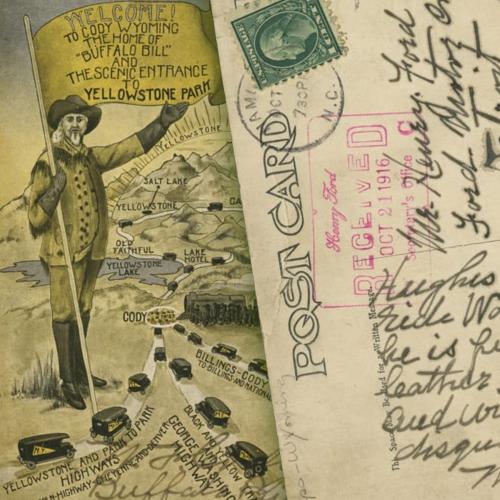 WELCOME!
TO CODY WYOMING
THE HOME OF
"BUFFALO BILL"
AND
THE SCENIC ENTRANCE
TO
YELLOWSTONE PARK
YELLOWSTONE
SALT LAKE
YELLOWSTONE
OLD
FAITHFUL
LAKE
HOTEL
YELLOWSTONE
LAKE
CODY
BILLINGS-CODY
TO BILLINGS AND NATIONAL
YELLOWSTONE AND PARK TO PARK
HIGHWAYS
HIGHWAY-CHEYENNE AND DENVER
GEORGE WASHING
HIGHWAY
BLACK AND YELLOW
POST CARD
OCT
730P
N.C.
Henry Ford
RECEIVED
OCT 21 1916
Secretary's Office
Mr. Henry Ford
Ford Motor C
This Space May Be Used for a Written Message
Hughes
Side W
he is
leather
and w
disgu